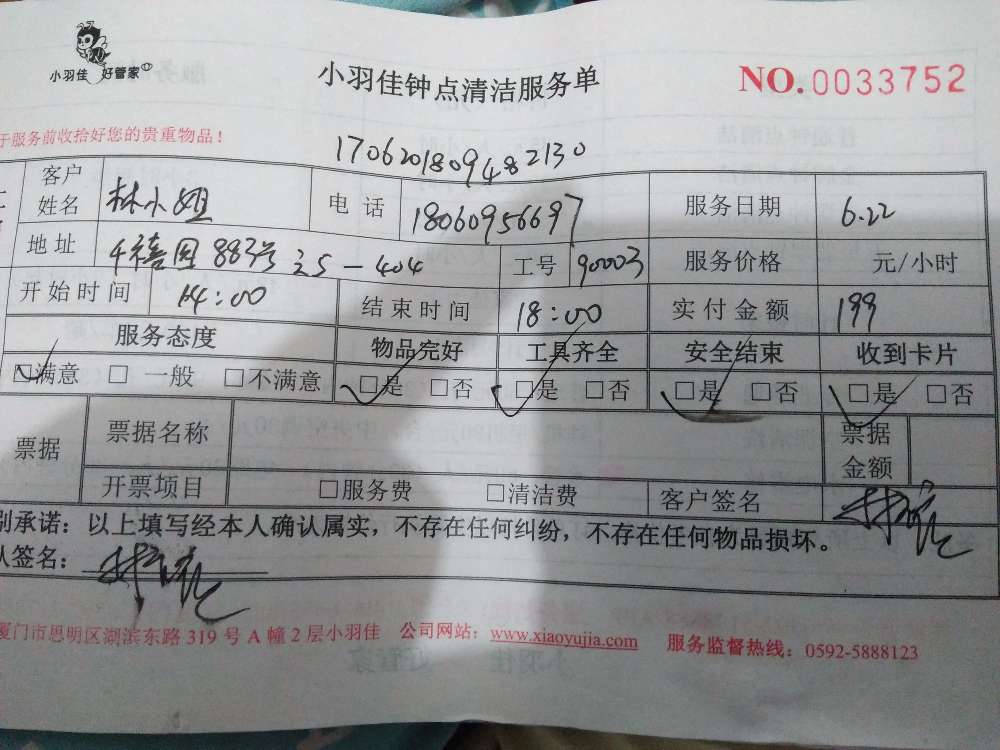 小羽佳 好管家
小羽佳钟点清洁服务单
NO.0033752
于服务前收拾好您的贵重物品！
17062018094482130
客户姓名 林小姐 电话 18060956697 服务日期 6.22
地址 千禧园883号 25-404 工号 90003 服务价格 元/小时
开始时间 14:00 结束时间 18:00 实付金额 199
服务态度 物品完好 工具齐全 安全结束 收到卡片
☑满意 □一般 □不满意 ☑是 □否 ☑是 □否 ☑是 □否 ☑是 □否
票据 票据名称 票据金额
开票项目 □服务费 □清洁费 客户签名
别承诺：以上填写经本人确认属实，不存在任何纠纷，不存在任何物品损坏。
人签名：
厦门市思明区湖滨东路 319 号 A 幢 2 层小羽佳 公司网站：www.xiaoyujia.com 服务监督热线：0592-5888123